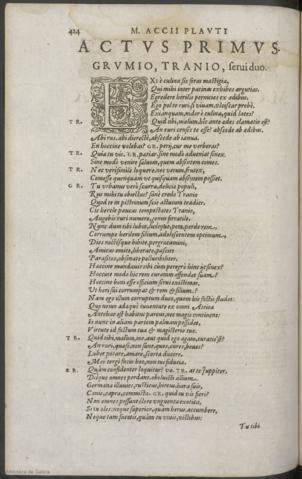 424 M. ACCII PLAVTI
ACTVS PRIMVS.
GRVMIO, TRANIO, serui duo.
EXI è culina sis foras mastigia,
Qui mihi inter patinas exhibes argutias.
Egredere herilis pernicies ex ædibus.
Ego pol te ruri, si viuam, vlciscar probè.
Exi, inquam, nidor è culina, quid lates?
TR. Quid tibi, malum, hîc ante ædes clamatio est?
An ruri censes te esse? abscede ab ædibus.
Abi rus, abi dierectè, abscede ab ianua.
En hoccine volebas? GR. perij, cur me verberas?
TR. Quia tu vis. GR. patiar. sine modò adueniat senex.
Sine modò venire saluum, quem absentem comes.
TR. Nec verisimile loquere, nec verum, frutex,
Comesse quenquam vt quisquam absentem possiet.
GR. Tu vrbanus verò scurra, deliciæ populi,
Rus mihi tu obiectas? sanè credo Tranio
Quod te in pistrinum scis actutum tradier.
Cis hercle paucas tempestates Tranio,
Augebis ruri numerum, genus ferratile.
Nunc dum tibi lubet, licétque, pota, perde rem.
Corrumpe herilem filium, adolescentem optimum.
Dies noctésque bibite, pergræcamini,
Amicas emite, liberate, pascite
Parasitos, obsonate pollucibiliter.
Hæccine mandauit tibi cùm peregrè hinc iit senex?
Hoccine modo hic rem curatam offendet suam?
Hoccine boni esse officium serui existimas,
Vt heri sui corrumpat & rem & filium?
Nam ego illum corruptum duco, quom his factis studet.
Quo nemo adæquè iuuentute ex omni Attica
Antehac est habitus parcus, nec magis continens:
Is nunc in aliam partem palmam possidet,
Virtute id factum tua & magisterio tuo.
TR. Quid tibi, malum, me, aut quid ego agam, curatio'st?
An ruri, quæso, non sunt, quos cures, boues?
Lubet potare, amare, scorta ducere.
Mei tergi facio hæc, non tui fiducia.
GR. Quàm confidenter loquitur? TR. at te Iuppiter,
Diíque omnes perdant. oboluisti allium.
Germana illuuies, rusticus, hircus, hara suis,
Canis, capra, commista. GR. quid tu vis fieri?
Non omnes possunt olere vnguenta exotica,
Si tu oles: neque superior, quàm herus, accumbere,
Neque tam facetis, quàm tu viuis, victibus:
Tu tibi